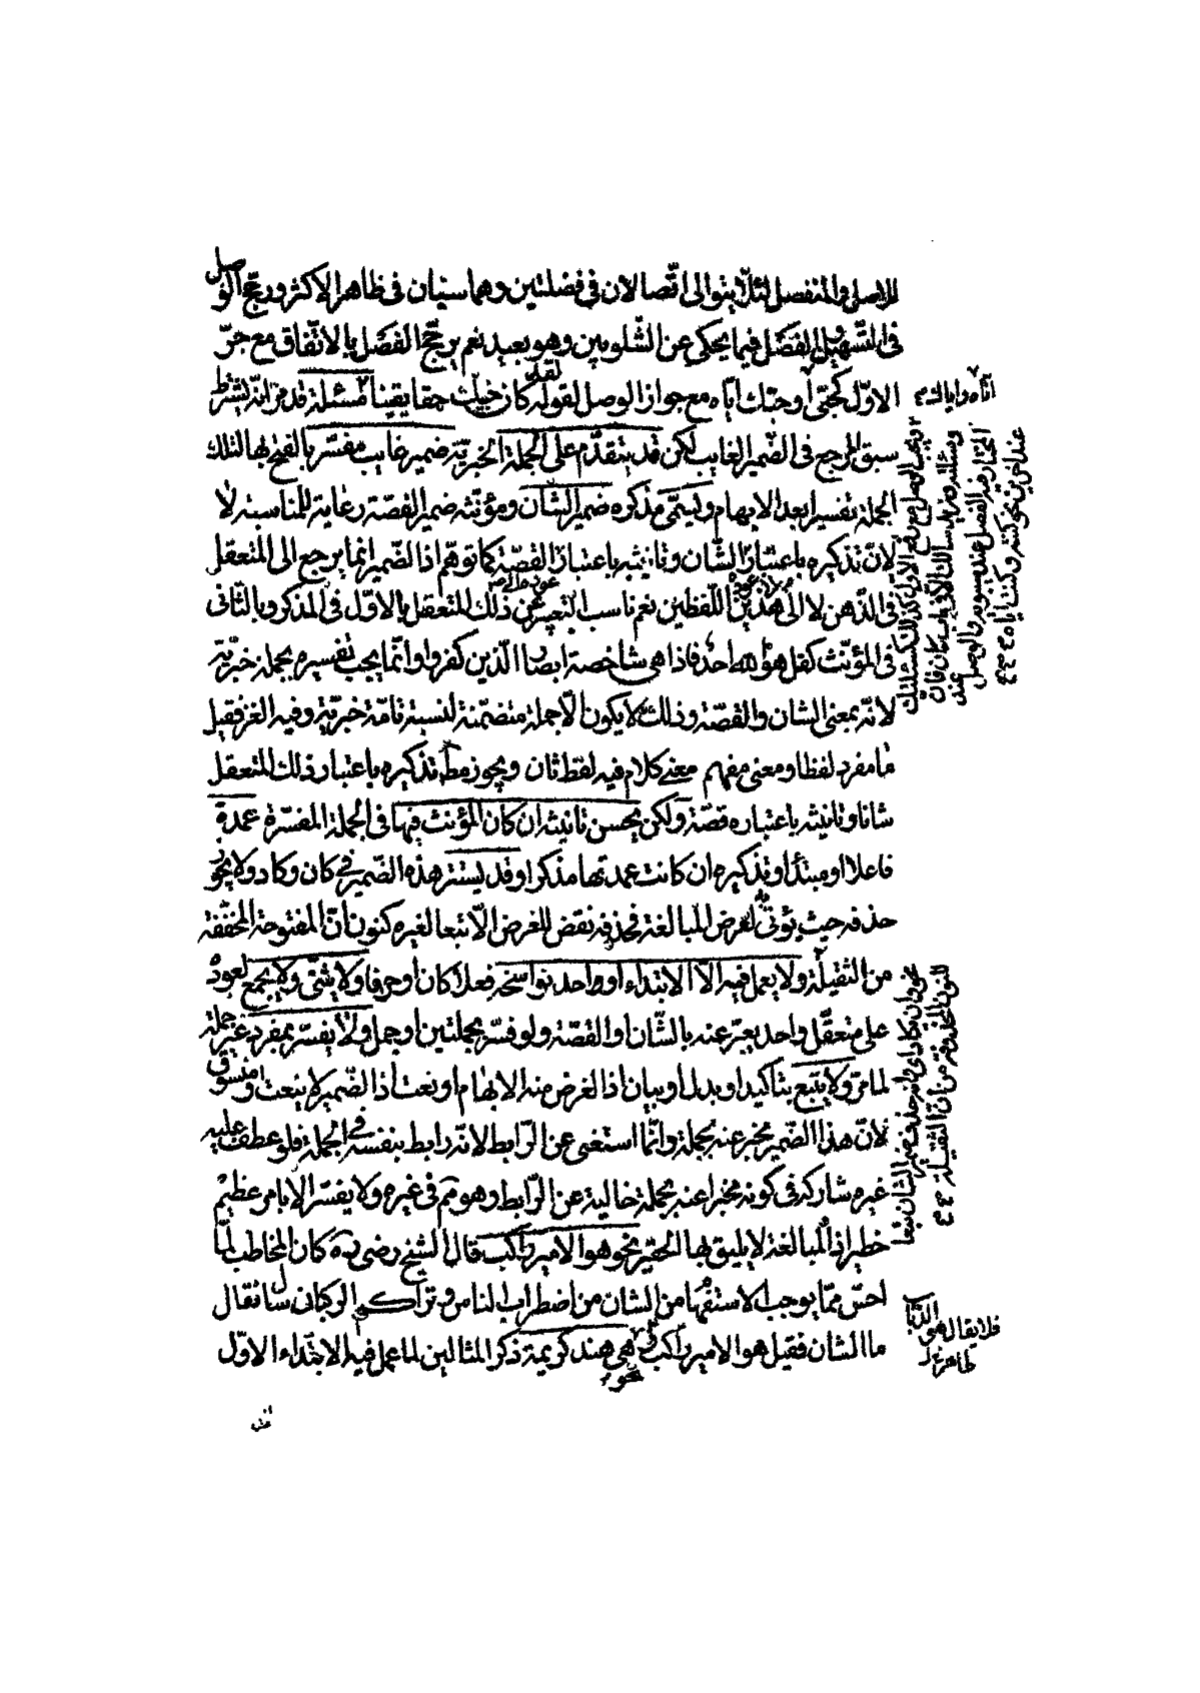 للاصل والمنفصل لئلا يتوالى اتّصالان فى فضلتين وهما سيّان فى ظاهر الاكثر ورجّح الوصل
فى التّسهيل الفصل فيما يحكى عن الشّلوبين وهو بعيد نعم يرجّح الفصل بالاتّفاق مع جرّ
الاوّل كحبّى او حبّك ايّاه مع جواز الوصل لقوله لقد كان حبّيك حقا يقينا مسئلة قد مرّ انّه يشترط
سبق المرجع فى الضّمير الغايب لكن قد يتقدّم على الجملة الخبريّة ضمير غايب مفسّر بالفتح بها لتلك
الجملة تفسيرا بعد الابهام ويسمّى مذكره ضمير الشّان ومؤنّثه ضمير القصّة رعاية للمناسبة لا
لانّ تذكيره باعتبار الشّان وتانيثه باعتبار القصّة كما توهّم اذ الضّمير انّما يرجع الى المتعقل
فى الذّهن لا الى هذين اللّفظين نعم ناسب التعبير عن ذلك المتعقل بالاوّل فى المذكر وبالثّانى
فى المؤنّث كقل هو الله احد فاذا هى شاخصة ابصار الّذين كفروا وانّما يجب تفسيره بجملة خبريّة
لانّه بمعنى الشان والقصّة وذلك لا يكون الّا جملة متضمّنة لنسبة تامّة خبريّة وفيه الغز فقيل
ما مفرد لفظا ومعنى مفهم معنى كلام فيه لفظ ثان ويجوز مط تذكيره باعتبار ذلك المتعقل
شانا وتانيثه باعتباره قصّة ولكن يحسن تانيثه ان كان المؤنث فيها فى الجملة المفسّرة عمدة
فاعلا او مبتدأ وتذكيره ان كانت عمدتها مذكرا وقد يستتر هذه الضّمير فى كان وكاد ولا يجوز
حذفه حيث يؤتى به لغرض المبالغة فحذفه نقض للغرض الّا تبعا لغيره كنون انّ المفتوحة المخفّفة
من الثقيلة ولا يعمل فيه الّا الابتداء او واحد نواسخه فعلا كان او حرفا ولا يثنّى ولا يجمع لعوده
على متعقّل واحد يعبّر عنه بالشّان او القصّة ولو فسّر بجملتين او جمل ولا يفسّر بمفرد غير جملة
لما مرّ ولا يتبع بتاكيد او بدل او بيان اذ الغرض منه الابهام او نعت اذ الضّمير لا ينعت او منسوق
لانّ هذا الضّمير مخبر عنه بجملة وانّما استغنى عن الرّابط لانّه رابط بنفسه فى الجملة فلو عطف عليه
غيره شاركه فى كونه مخبرا عنه بجملة خالية عن الرّابط وهو مم فى غيره ولا يفسّر الّا بامر عظيم
خطير اذ المبالغة لا يليق بها الحقير نحو هو الامير راكب قال الشيخ رضى ره كان المخاطب لمّا
احسّ ممّا يوجب الاستفهام من الشان من اضطراب الناس وتراكم الركبان سأل فقال
ما الشان فقيل هو الامير راكب ونحو هى هند كريمة ذكر المثالين لما عمل فيه الابتداء الاوّل
فلا يقال هى الذّباب
طاهرة